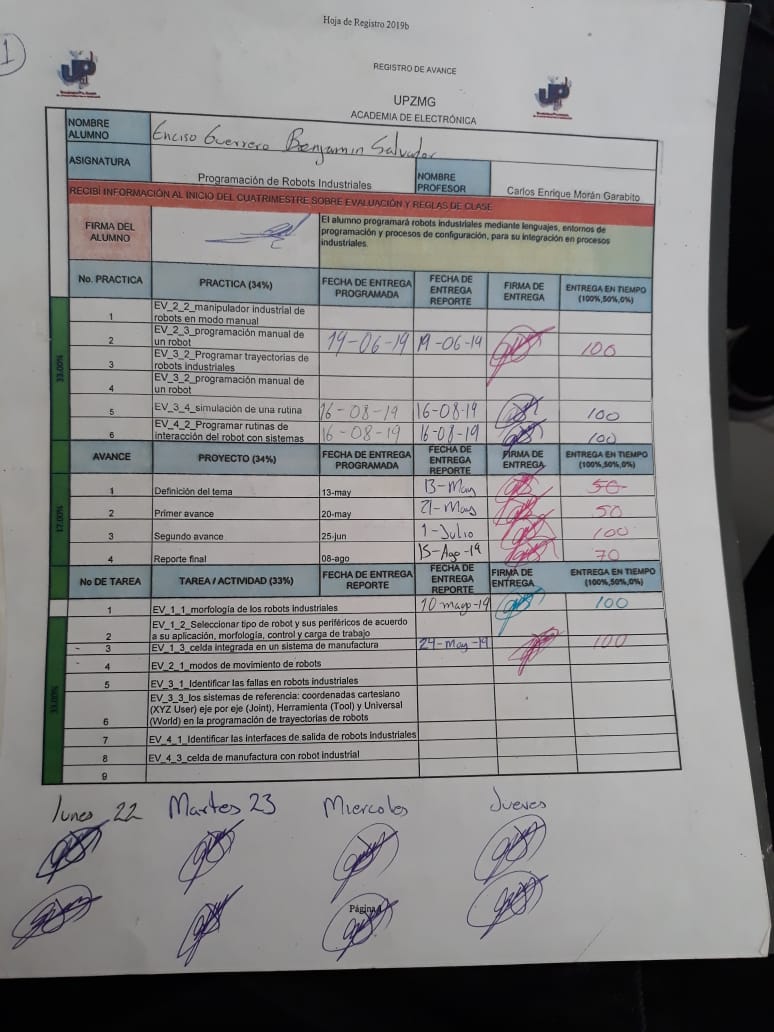 Hoja de Registro 2019b
1
UP
REGISTRO DE AVANCE
UP
UPZMG
ACADEMIA DE ELECTRÓNICA
NOMBRE ALUMNO Enciso Guerrero Benjamin Salvador
ASIGNATURA Programación de Robots Industriales NOMBRE PROFESOR Carlos Enrique Morán Garabito
RECIBÍ INFORMACIÓN AL INICIO DEL CUATRIMESTRE SOBRE EVALUACIÓN Y REGLAS DE CLASE
FIRMA DEL ALUMNO El alumno programará robots industriales mediante lenguajes, entornos de programación y procesos de configuración, para su integración en procesos industriales.
No. PRACTICA PRACTICA (34%) FECHA DE ENTREGA PROGRAMADA FECHA DE ENTREGA REPORTE FIRMA DE ENTREGA ENTREGA EN TIEMPO (100%,50%,0%)
33.00%
1 EV_2_2_manipulador industrial de robots en modo manual
2 EV_2_3_programación manual de un robot 19-06-19 19-06-19 100
3 EV_3_2_Programar trayectorias de robots industriales
4 EV_3_2_programación manual de un robot
5 EV_3_4_simulación de una rutina 16-08-19 16-08-19 100
6 EV_4_2_Programar rutinas de interacción del robot con sistemas 16-08-19 16-08-19 100
AVANCE PROYECTO (34%) FECHA DE ENTREGA PROGRAMADA FECHA DE ENTREGA REPORTE FIRMA DE ENTREGA ENTREGA EN TIEMPO (100%,50%,0%)
17.00%
1 Definición del tema 13-may 13-May 50
2 Primer avance 20-may 21-May 50
3 Segundo avance 25-jun 1-Julio 100
4 Reporte final 08-ago 15-Ago-19 70
No DE TAREA TAREA / ACTIVIDAD (33%) FECHA DE ENTREGA REPORTE FECHA DE ENTREGA REPORTE FIRMA DE ENTREGA ENTREGA EN TIEMPO (100%,50%,0%)
33.00%
1 EV_1_1_morfología de los robots industriales 10 mayo-19 100
2 EV_1_2_Seleccionar tipo de robot y sus periféricos de acuerdo a su aplicación, morfología, control y carga de trabajo
3 EV_1_3_celda integrada en un sistema de manufactura 24-May-19 100
4 EV_2_1_modos de movimiento de robots
5 EV_3_1_Identificar las fallas en robots industriales
6 EV_3_3_los sistemas de referencia: coordenadas cartesiano (XYZ User) eje por eje (Joint), Herramienta (Tool) y Universal (World) en la programación de trayectorias de robots
7 EV_4_1_Identificar las interfaces de salida de robots industriales
8 EV_4_3_celda de manufactura con robot industrial
9
lunes 22 Martes 23 Miercoles Jueves
Página